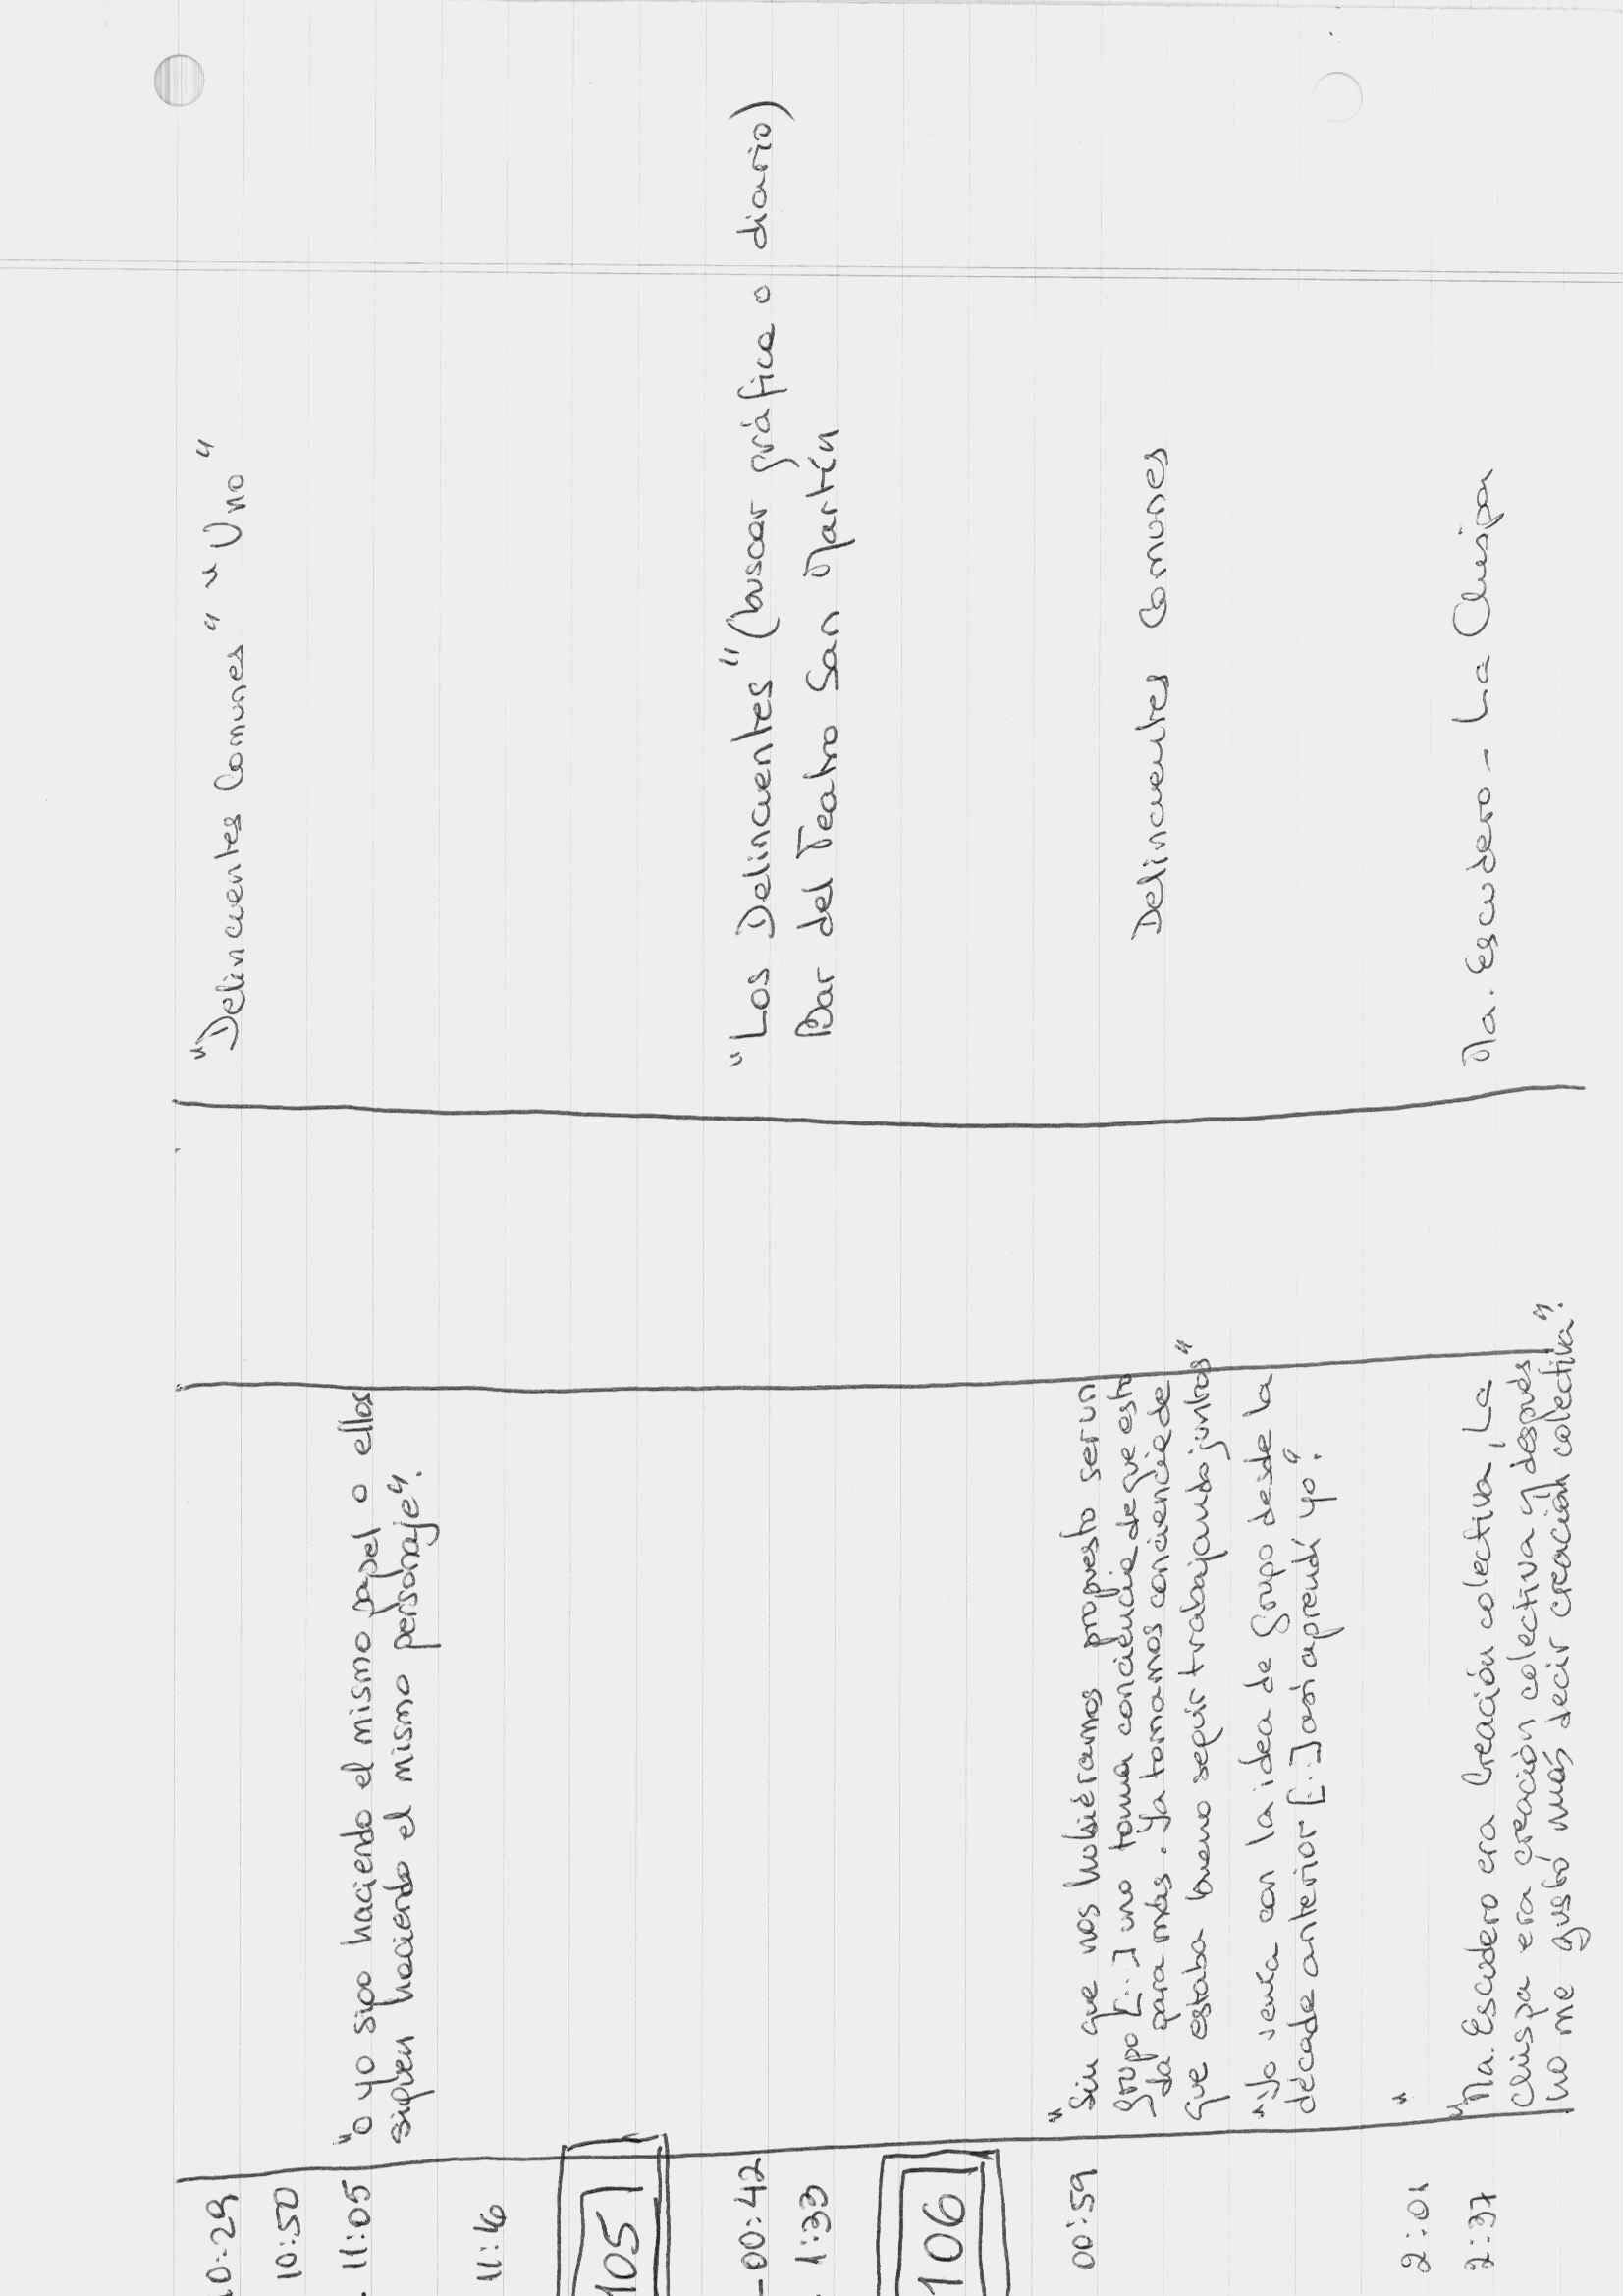 10:29
"Delincuentes Comunes" "Uno"
10:50
11:05
"o yo sigo haciendo el mismo papel o ellos
siguen haciendo el mismo personaje".
11:16
105
-00:42
"Los Delincuentes" (buscar gráfica o diario)
1:33
Bar del Teatro San Martín
106
00:59
"Sin que nos hubiéramos propuesto ser un
grupo [...] uno toma conciencia de que esto
da para más. Ya tomamos conciencia de
que estaba bueno seguir trabajando juntos"
Delincuentes Comunes
"Yo venía con la idea de Grupo desde la
decada anterior [...] así aprendí yo".
2:01
"
2:37
"Ma. Escudero era Creación colectiva, La
Chispa era creación colectiva y después
no me gustó más decir creación colectiva".
Ma. Escudero - La Chispa